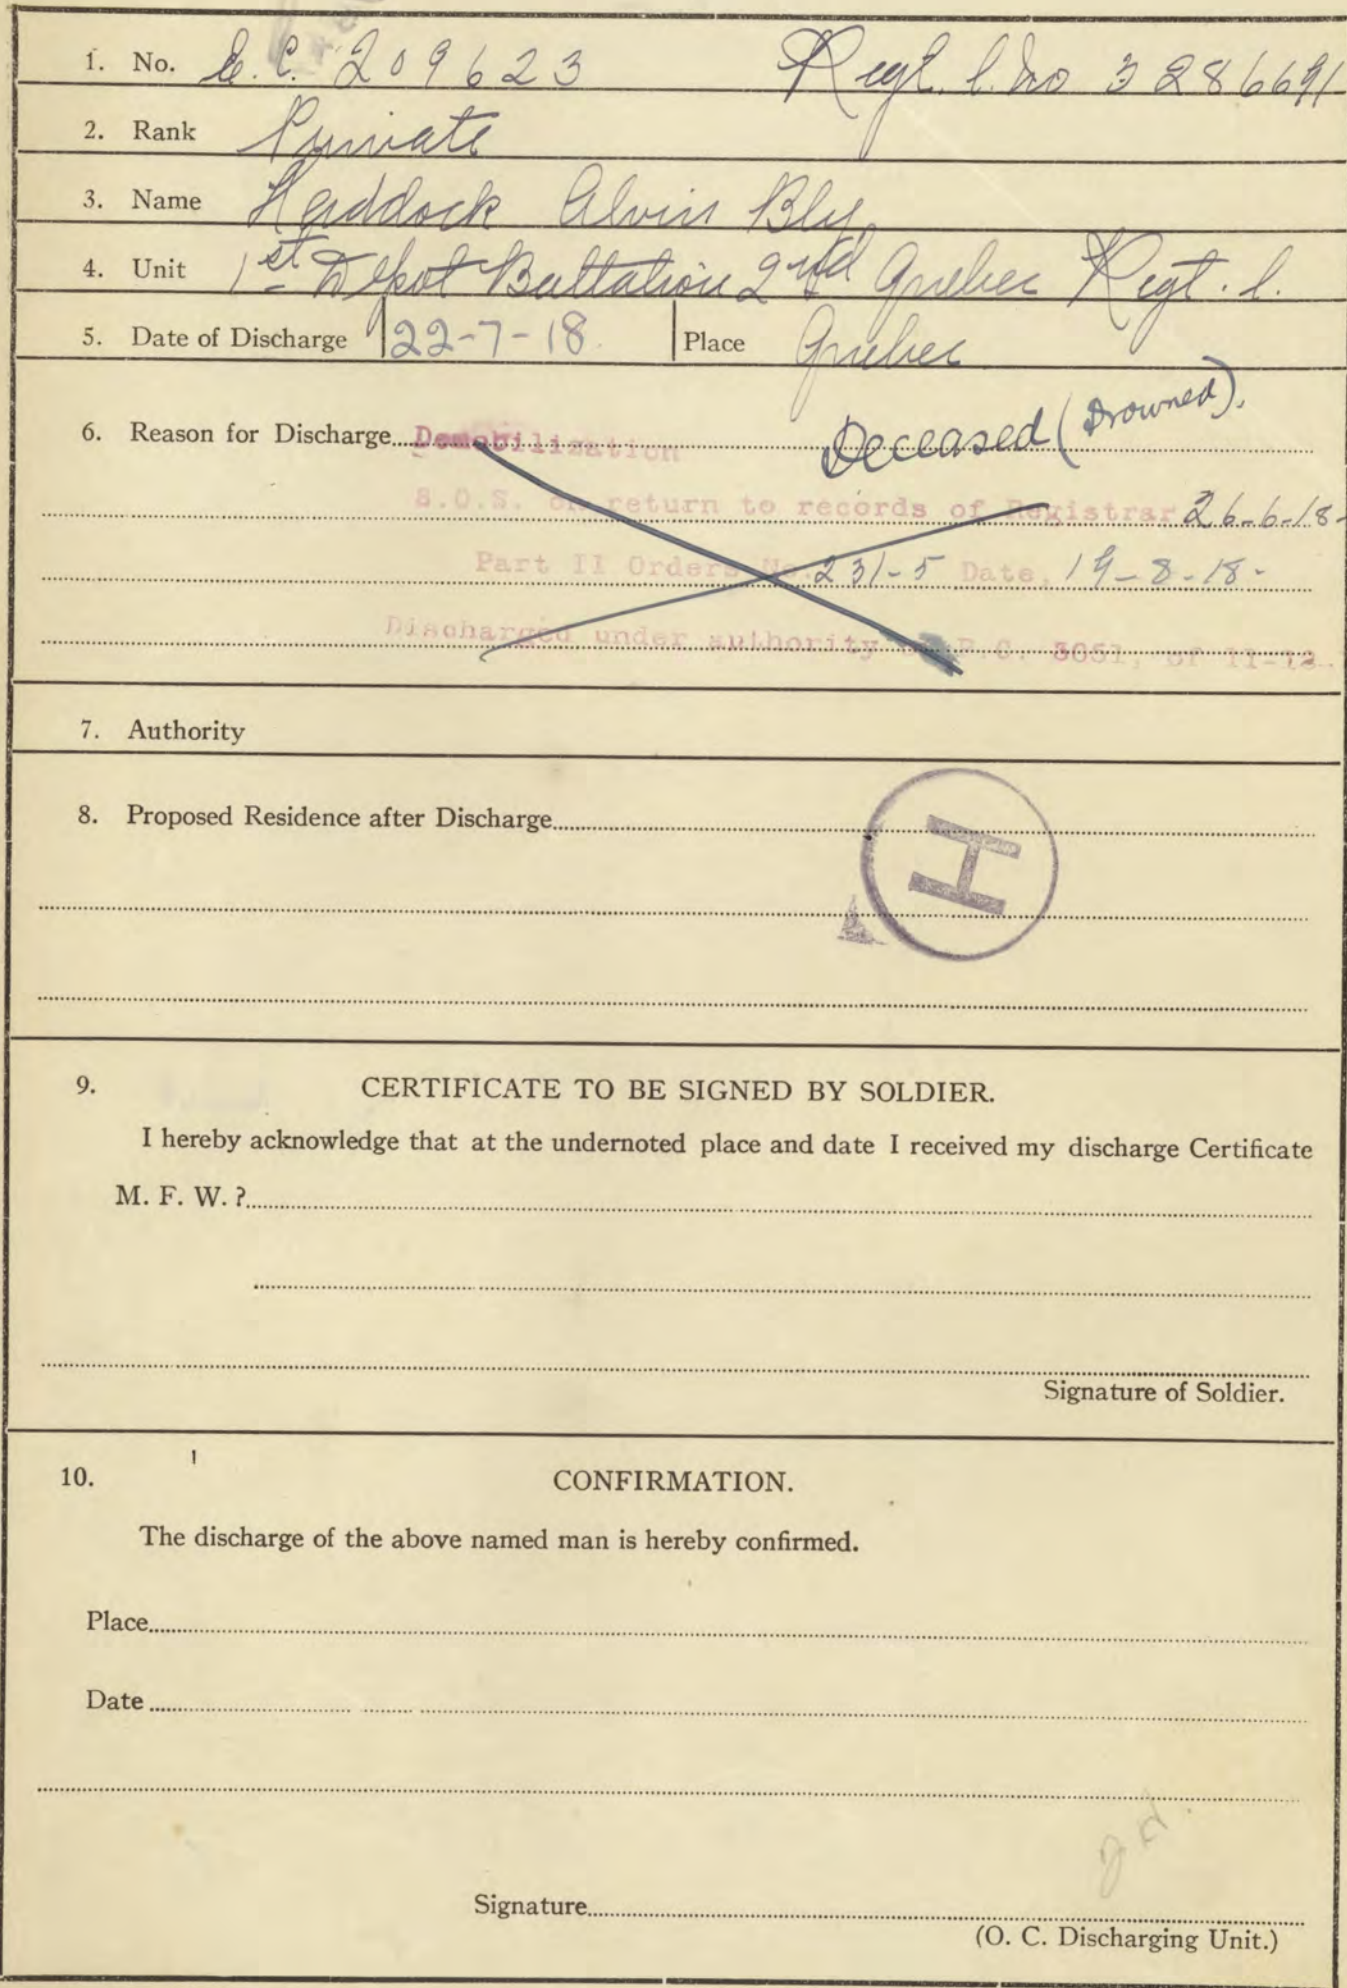 1. No. E.C. 209623 Regt. l. No 3286691
2. Rank Private
3. Name Haddock Alvin Bly
4. Unit 1st Depot Battalion 2nd Quebec Regt. l.
5. Date of Discharge 22-7-18 Place Quebec
6. Reason for Discharge Demobilization Deceased (Drowned).
S.O.S. on return to records of Registrar 26-6-18-
Part II Orders No. 231-5 Date, 19-8-18-
Discharged under authority P.C. 3051, of 11-12.
7. Authority
8. Proposed Residence after Discharge
H
9. CERTIFICATE TO BE SIGNED BY SOLDIER.
I hereby acknowledge that at the undernoted place and date I received my discharge Certificate
M. F. W. ?
Signature of Soldier.
10. CONFIRMATION.
The discharge of the above named man is hereby confirmed.
Place
Date
Signature
(O. C. Discharging Unit.)